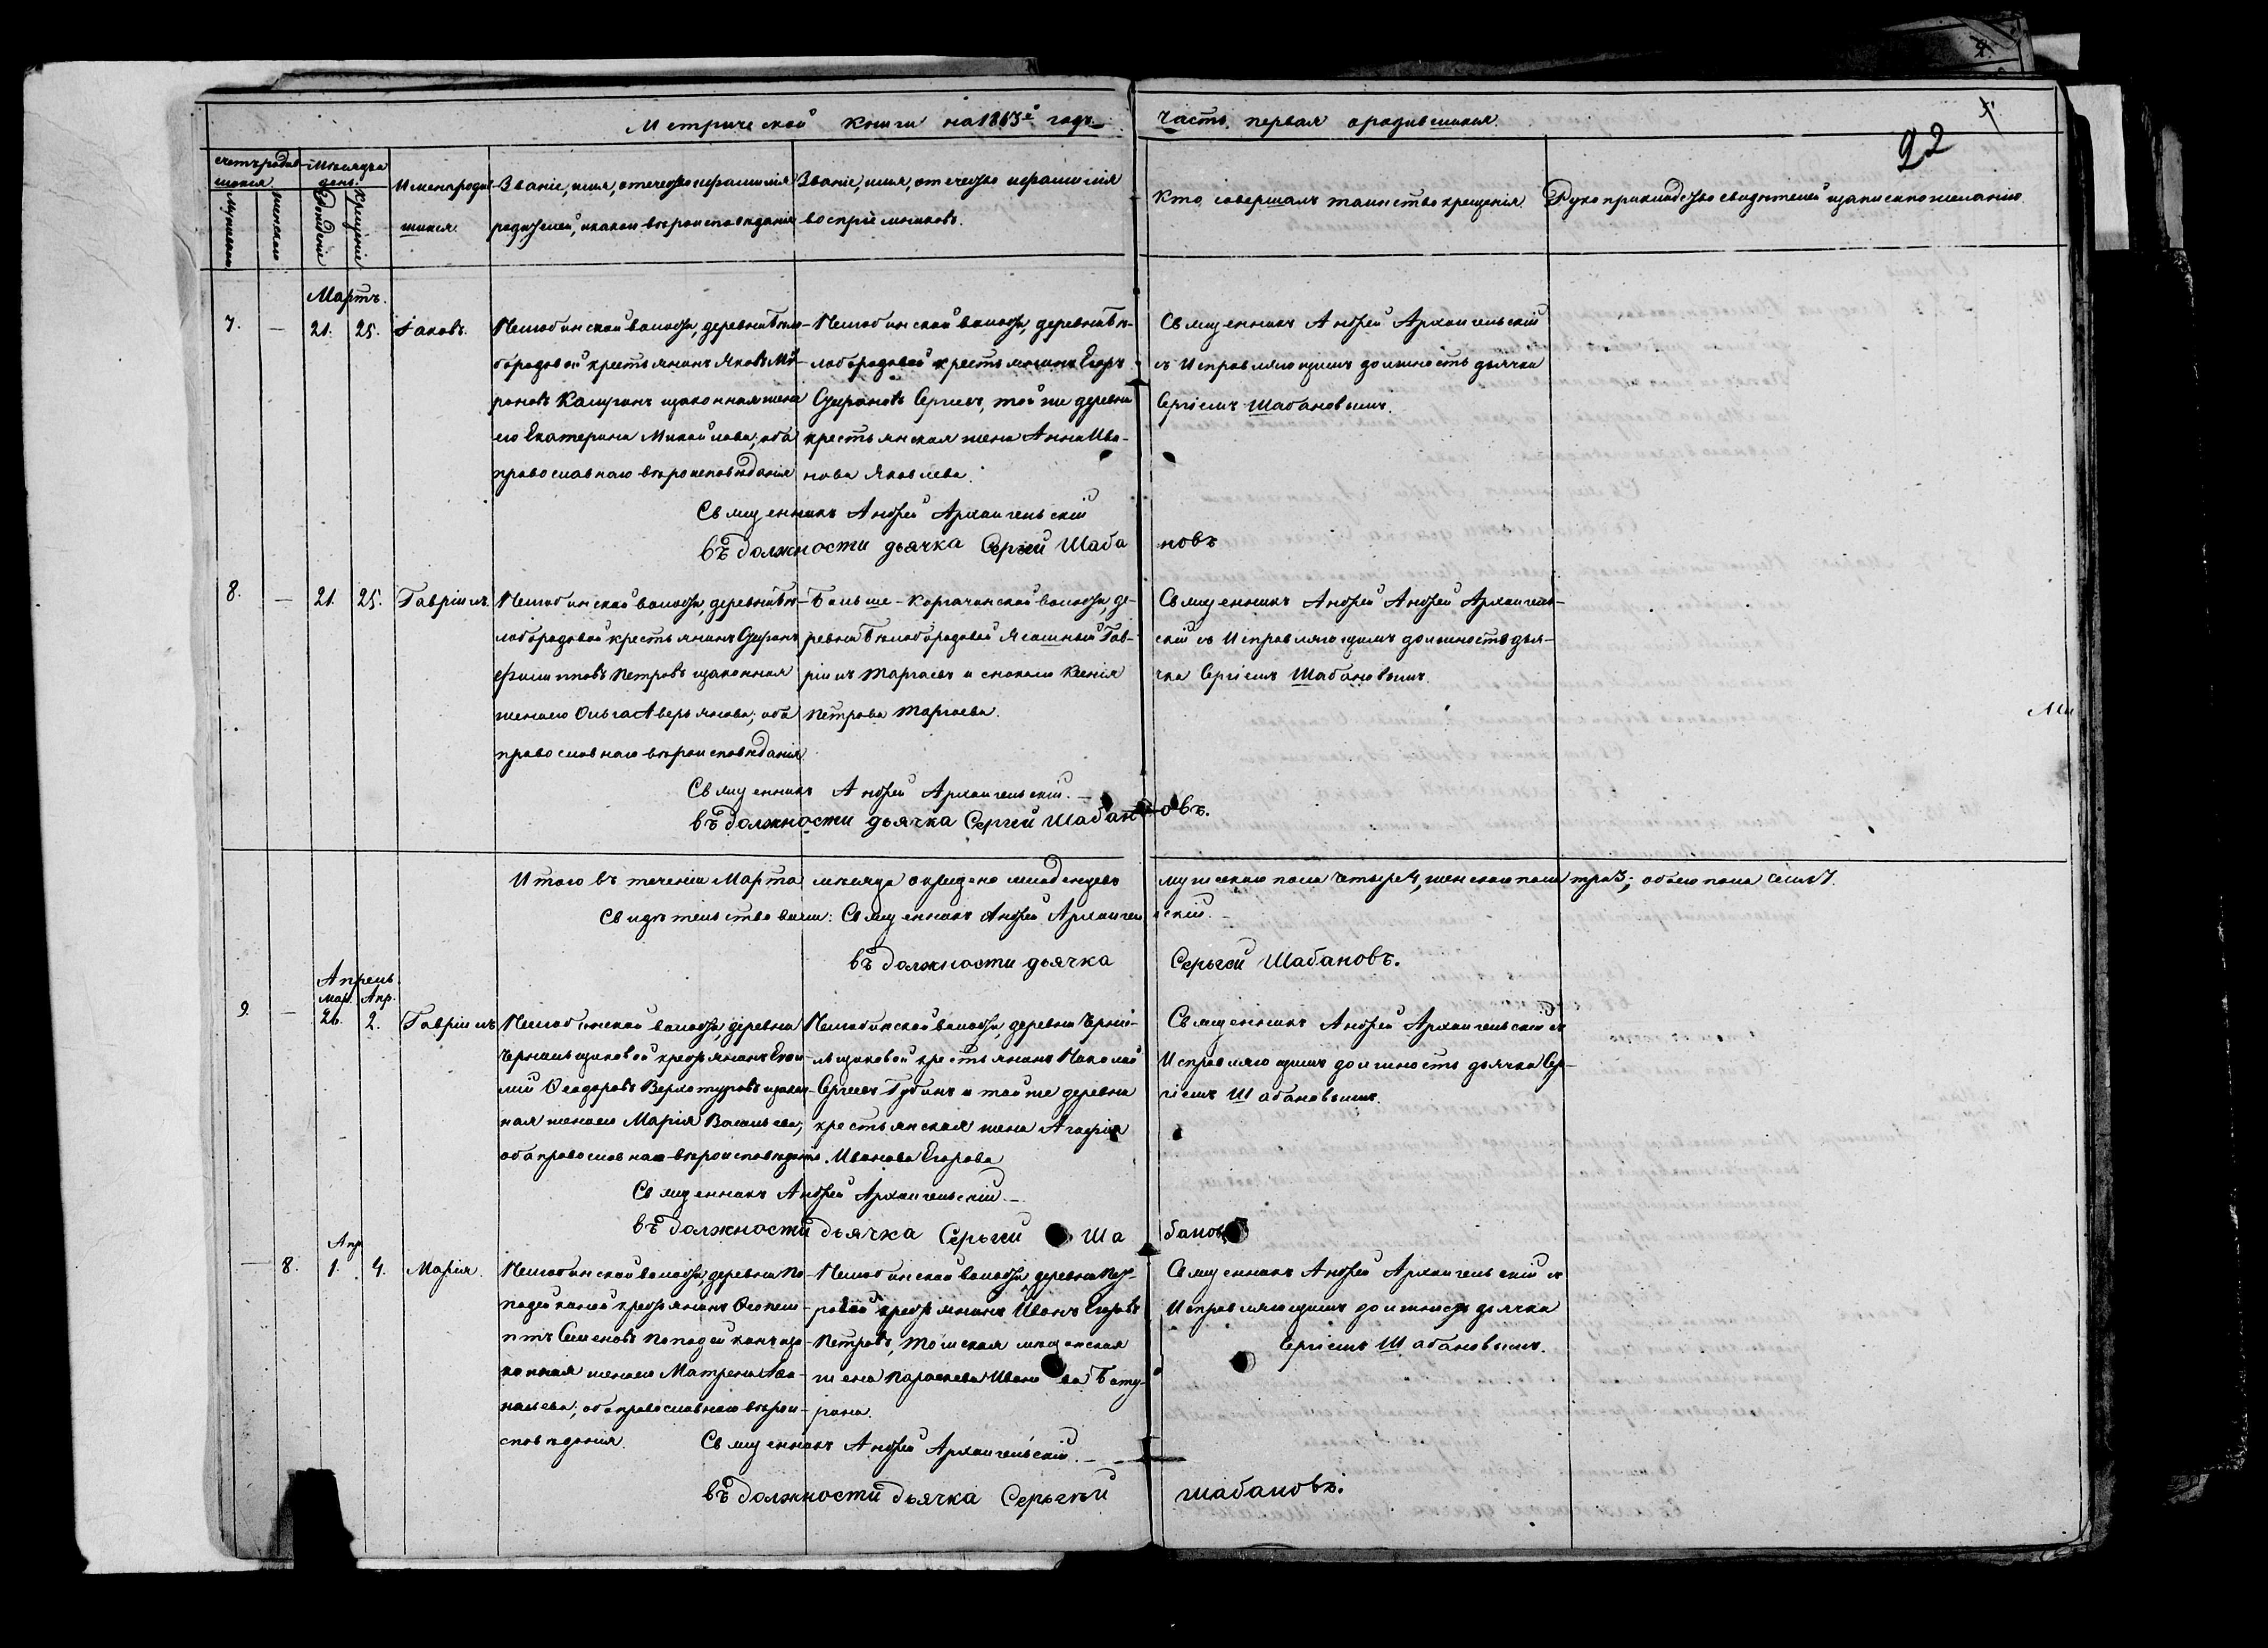 Метрической книги на 1863й годъ. часть первая о родившихся.
22
счетъ родив-
шихся.
Мужескаго
женскаго
Мѣсяцъ и
день.
Рожденія
Крещенія
Имена родив-
шихся.
Званіе, имя, отечество и фамилія
родителей, и какого вѣроисповѣданія
Званіе, имя, отечество и фамилія
воспріемниковъ.
Кто совершалъ таинство крещенія
Рукоприкладство свидѣтелей записи по желанію
Мартъ.
7. — 21. 25. Іаковъ.
волости, деревни Бѣло-
бородовой крестьянинъ Яковъ Ми-
роновъ и законная жена
его Екатерина Михайлова, оба
православнаго вѣроисповѣданія
волости, деревни Бѣ-
лобородовой крестьянинъ Егоръ
Сергѣевъ, той же деревни
крестьянская жена Анна Ива-
нова Яковлева.
Священникъ Андрей Архангельскій
съ Исправляющимъ должность дьячка
Сергіемъ Шабановымъ.
Священникъ Андрей Архангельскій
въ должности дьячка Сергѣй Шабановъ
8. — 21. 25. Гавріилъ.
волости, деревни Бѣ-
лобородовой крестьянинъ
Филипповъ Петровъ и законная
жена его Ольга Аверьянова; оба
православнаго вѣроисповѣданія
Больше-Коргачинской волости, де-
ревни Бѣлобородовой Ясашный Гав-
ріилъ и
Петрова
Священникъ Андрей Андрей Архангель-
скій съ Исправляющимъ должность дья-
чка Сергіемъ Шабановымъ.
Священникъ Андрей Архангельскій.
въ должности дьячка Сергѣй Шабановъ.
Итого въ теченіи Марта мѣсяца окрещено младенцевъ мужескаго пола четыре 4, женскаго пола три 3; обоего пола семь 7.
Свидѣтельствовали: Священникъ Андрей Архангельскій.
въ должности дьячка Серьгей Шабановъ.
Апрель.
Мар. Апр.
9. — 26. 2. Гавріилъ
волости, деревни
Чернильщиковой крестьянинъ
Ѳеодоровъ Верхотуровъ и закон-
ная жена его Марія Васильева;
оба православнаго вѣроисповѣданія.
волости, деревни Черни-
льщиковой крестьянинъ Николай
Сергѣевъ Губинъ и той же деревни
крестьянская жена Агафія
Иванова Егорова
Священникъ Андрей Архангельскій съ
Исправляющимъ должность дьячка Сер-
гіемъ Шабановымъ.
Священникъ Андрей Архангельскій.
въ должности дьячка Серьгий Шабановъ
Апр
— 8. 1. 4. Марія.
волости, деревни По-
крестьянинъ
Семеновъ и за-
конная жена его Матрена
оба православнаго вѣрои-
сповѣданія.
волости деревни
крестьянинъ Иванъ Егоровъ
Петровъ, Томская мѣщанская
жена Параскева Иванова
Священникъ Андрей Архангельскій съ
Исправляющимъ должность дьячка
Сергіемъ Шабановымъ.
Священникъ Андрей Архангельскій.
въ должности дьячка Серьгѣй шабановъ.